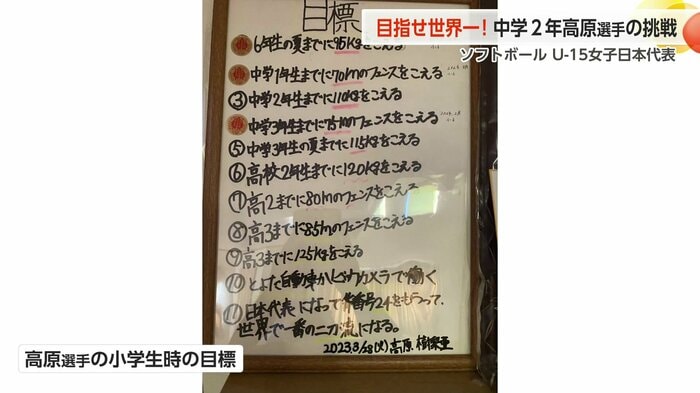 目指せ世界一！中学２年高原選手の挑戦
ソフトボール U-15女子日本代表
目標
6年生の夏までに95kgをこえる
中学1年生までに70mのフェンスをこえる
③中学2年生までに110kgをこえる
中学3年生までに75mのフェンスをこえる
⑤中学3年生の夏までに115kgをこえる
⑥高校2年生までに120kgをこえる
⑦高2までに80mのフェンスをこえる
⑧高3までに85mのフェンスをこえる
⑨高3までに125kgをこえる
⑩とよた自動車かビックカメラで働く
⑪日本代表になって背番号24をもらって、
世界で一番の二刀流になる。
2023.3/28(火)高原
高原選手の小学生時の目標